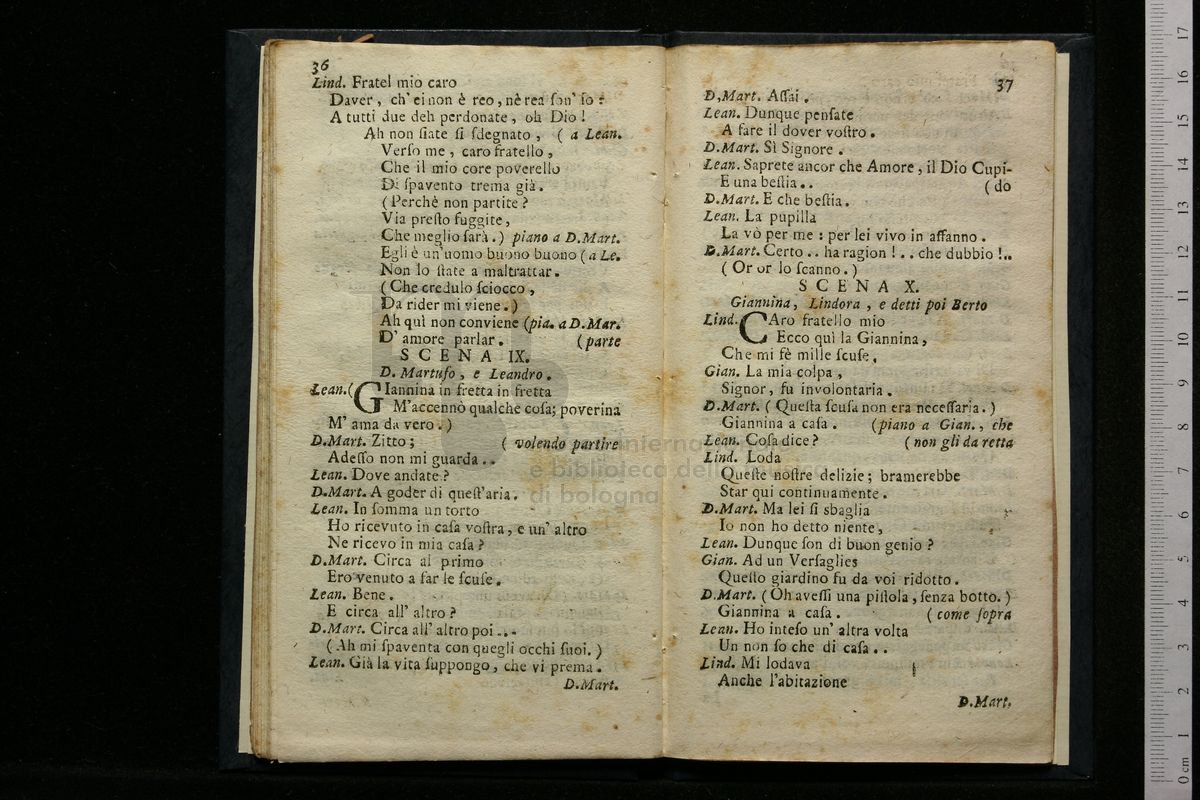 36
Lind. Fratel mio caro
Daver, ch' ei non è reo, nè rea ſon' ſo :
A tutti due deh perdonate, oh Dio !
Ah non ſiate ſi ſdegnato, ( a Lean.
Verſo me, caro fratello,
Che il mio core poverello
Di ſpavento trema già.
(Perchè non partite ?
Via preſto fuggite,
Che meglio ſarà.) piano a D.Mart.
Egli è un'uomo buono buono (a Le.
Non lo ſtate a maltrattar.
(Che credulo ſciocco,
Da rider mi viene.)
Ah quì non conviene (pia. a D.Mar.
D' amore parlar. (parte
SCENA IX.
D. Martufo, e Leandro.
Lean.(GIannina in fretta in fretta
M'accennò qualche coſa; poverina
M' ama da vero.)
D.Mart. Zitto; ( volendo partire
Adeſſo non mi guarda..
Lean. Dove andate ?
D.Mart. A goder di queſt'aria.
Lean. In ſomma un torto
Ho ricevuto in caſa voſtra, e un' altro
Ne ricevo in mia caſa ?
D.Mart. Circa al primo
Ero venuto a far le ſcuſe.
Lean. Bene.
E circa all' altro ?
D.Mart. Circa all' altro poi ...
(Ah mi ſpaventa con quegli occhi ſuoi.)
Lean. Già la vita ſuppongo, che vi prema.
D.Mart.
37
D,Mart. Aſſai.
Lean. Dunque penſate
A fare il dover voſtro.
D.Mart. Sì Signore.
Lean. Saprete ancor che Amore, il Dio Cupi-
E una beſtia.. (do
D.Mart. E che beſtia.
Lean. La pupilla
La vò per me : per lei vivo in affanno.
D.Mart. Certo.. ha ragion !.. che dubbio !..
( Or or lo ſcanno.)
SCENA X.
Giannina, Lindora, e detti poi Berto
Lind. CAro fratello mio
Ecco quì la Giannina,
Che mi fè mille ſcuſe.
Gian. La mia colpa,
Signor, fu involontaria.
D.Mart. ( Queſta ſcuſa non era neceſſaria.)
Giannina a caſa. (piano a Gian., che
Lean. Coſa dice ? (non gli da retta
Lind. Loda
Queſte noſtre delizie; bramerebbe
Star qui continuamente.
D.Mart. Ma lei ſi sbaglia
Io non ho detto niente,
Lean. Dunque ſon di buon genio ?
Gian. Ad un Verſaglies
Queſto giardino fu da voi ridotto.
D.Mart. ( Oh aveſſi una piſtola, ſenza botto.)
Giannina a caſa. ( come ſopra
Lean. Ho inteſo un' altra volta
Un non ſo che di caſa..
Lind. Mi lodava
Anche l'abitazione
D.Mart.
e biblioteca della
di bologna
0 cm 1 2 3 4 5 6 7 8 9 10 11 12 13 14 15 16 17